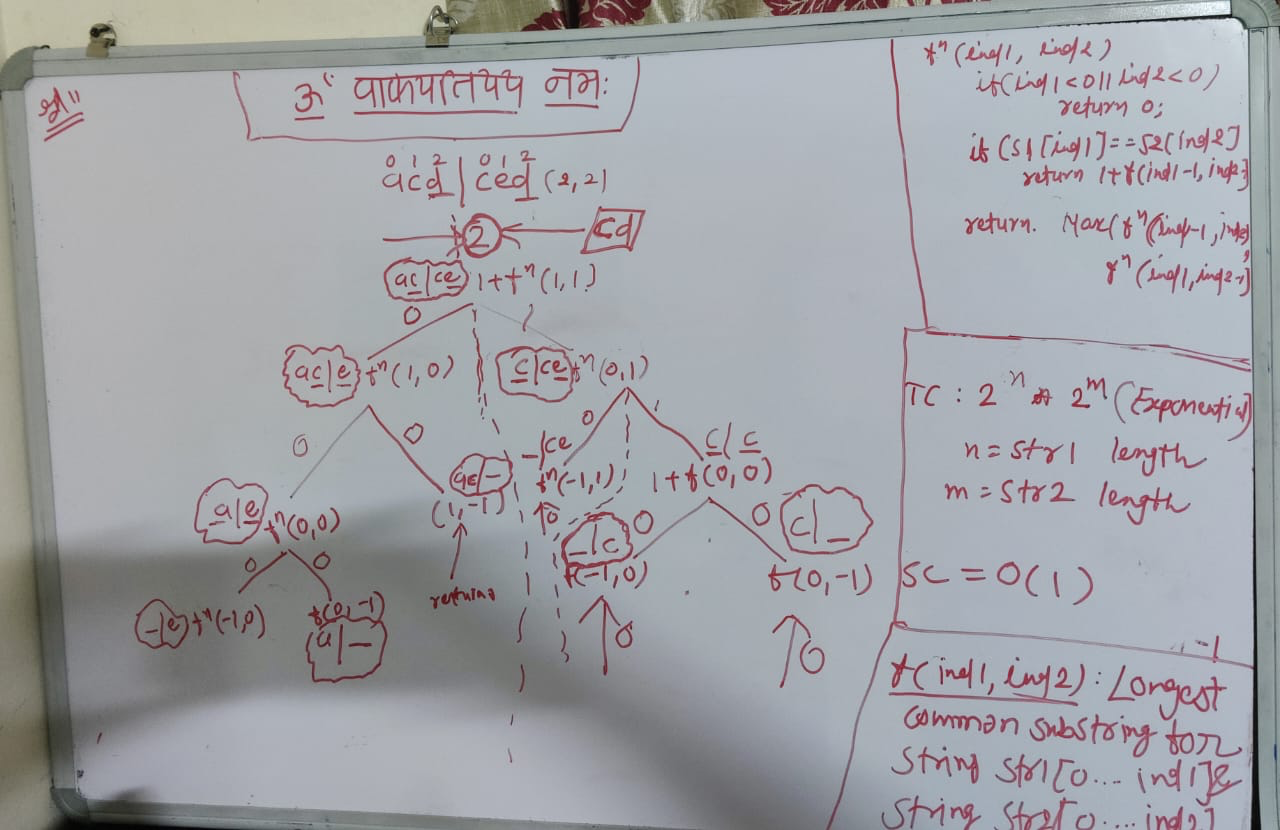 श्री॥
ॐ वाकपतयेय नमः
0 1 2 0 1 2
acd | ced (2,2)
2
cd
ac|ce 1+fⁿ(1,1)
0 1
ac|e fⁿ(1,0)
c|ce fⁿ(0,1)
0 0
0 1
_|ce
fⁿ(-1,1)
0
c|c
1+f(0,0)
ac|-
(1,-1)
returns
a|e fⁿ(0,0)
0 0
-|e fⁿ(-1,0)
f(0,-1)
a|-
0 0
_|c
f(-1,0)
0
c|_
f(0,-1)
0
fⁿ(ind1, ind2)
if(ind1<0||ind2<0)
return 0;
if (S1[ind1]==S2[ind2]
return 1+f(ind1-1, ind2-
return. Max(fⁿ(ind1-1, ind2)
,
fⁿ(ind1, ind2-1)
TC : 2ⁿ * 2ᵐ (Exponential)
n = str1 length
m = str2 length
SC = O(1)
-1
f(ind1, ind2) : Longest
common substring for
string str1[0....ind1]&
string str2[0....ind2]